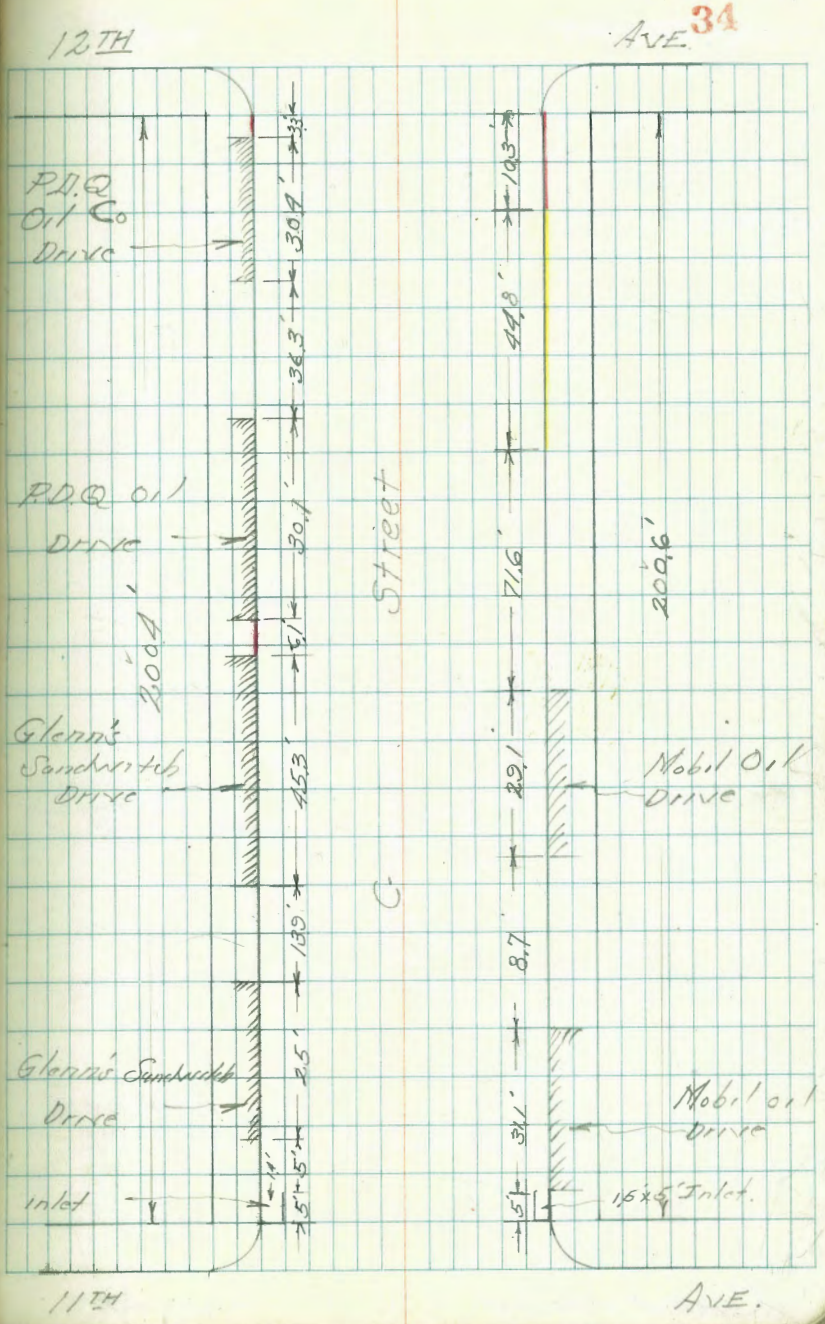 34
12TH
AVE.
P.D.Q
Oil Co
Drive
3.3'
30.4'
36.3'
P.D.Q Oil
Drive
30.1'
200.4'
5.1'
Glenn's
Sandwitch
Drive
45.3'
13.9'
Glenn's Sandwitch
Drive
25'
5'
1.4'
5'
inlet
C Street
10.3'
44.8'
71.6'
200.6'
29.1
Mobil Oil
Drive
8.7
31.1'
Mobil oil
Drive
5'
1.5'x5' Inlet.
11TH
AVE.